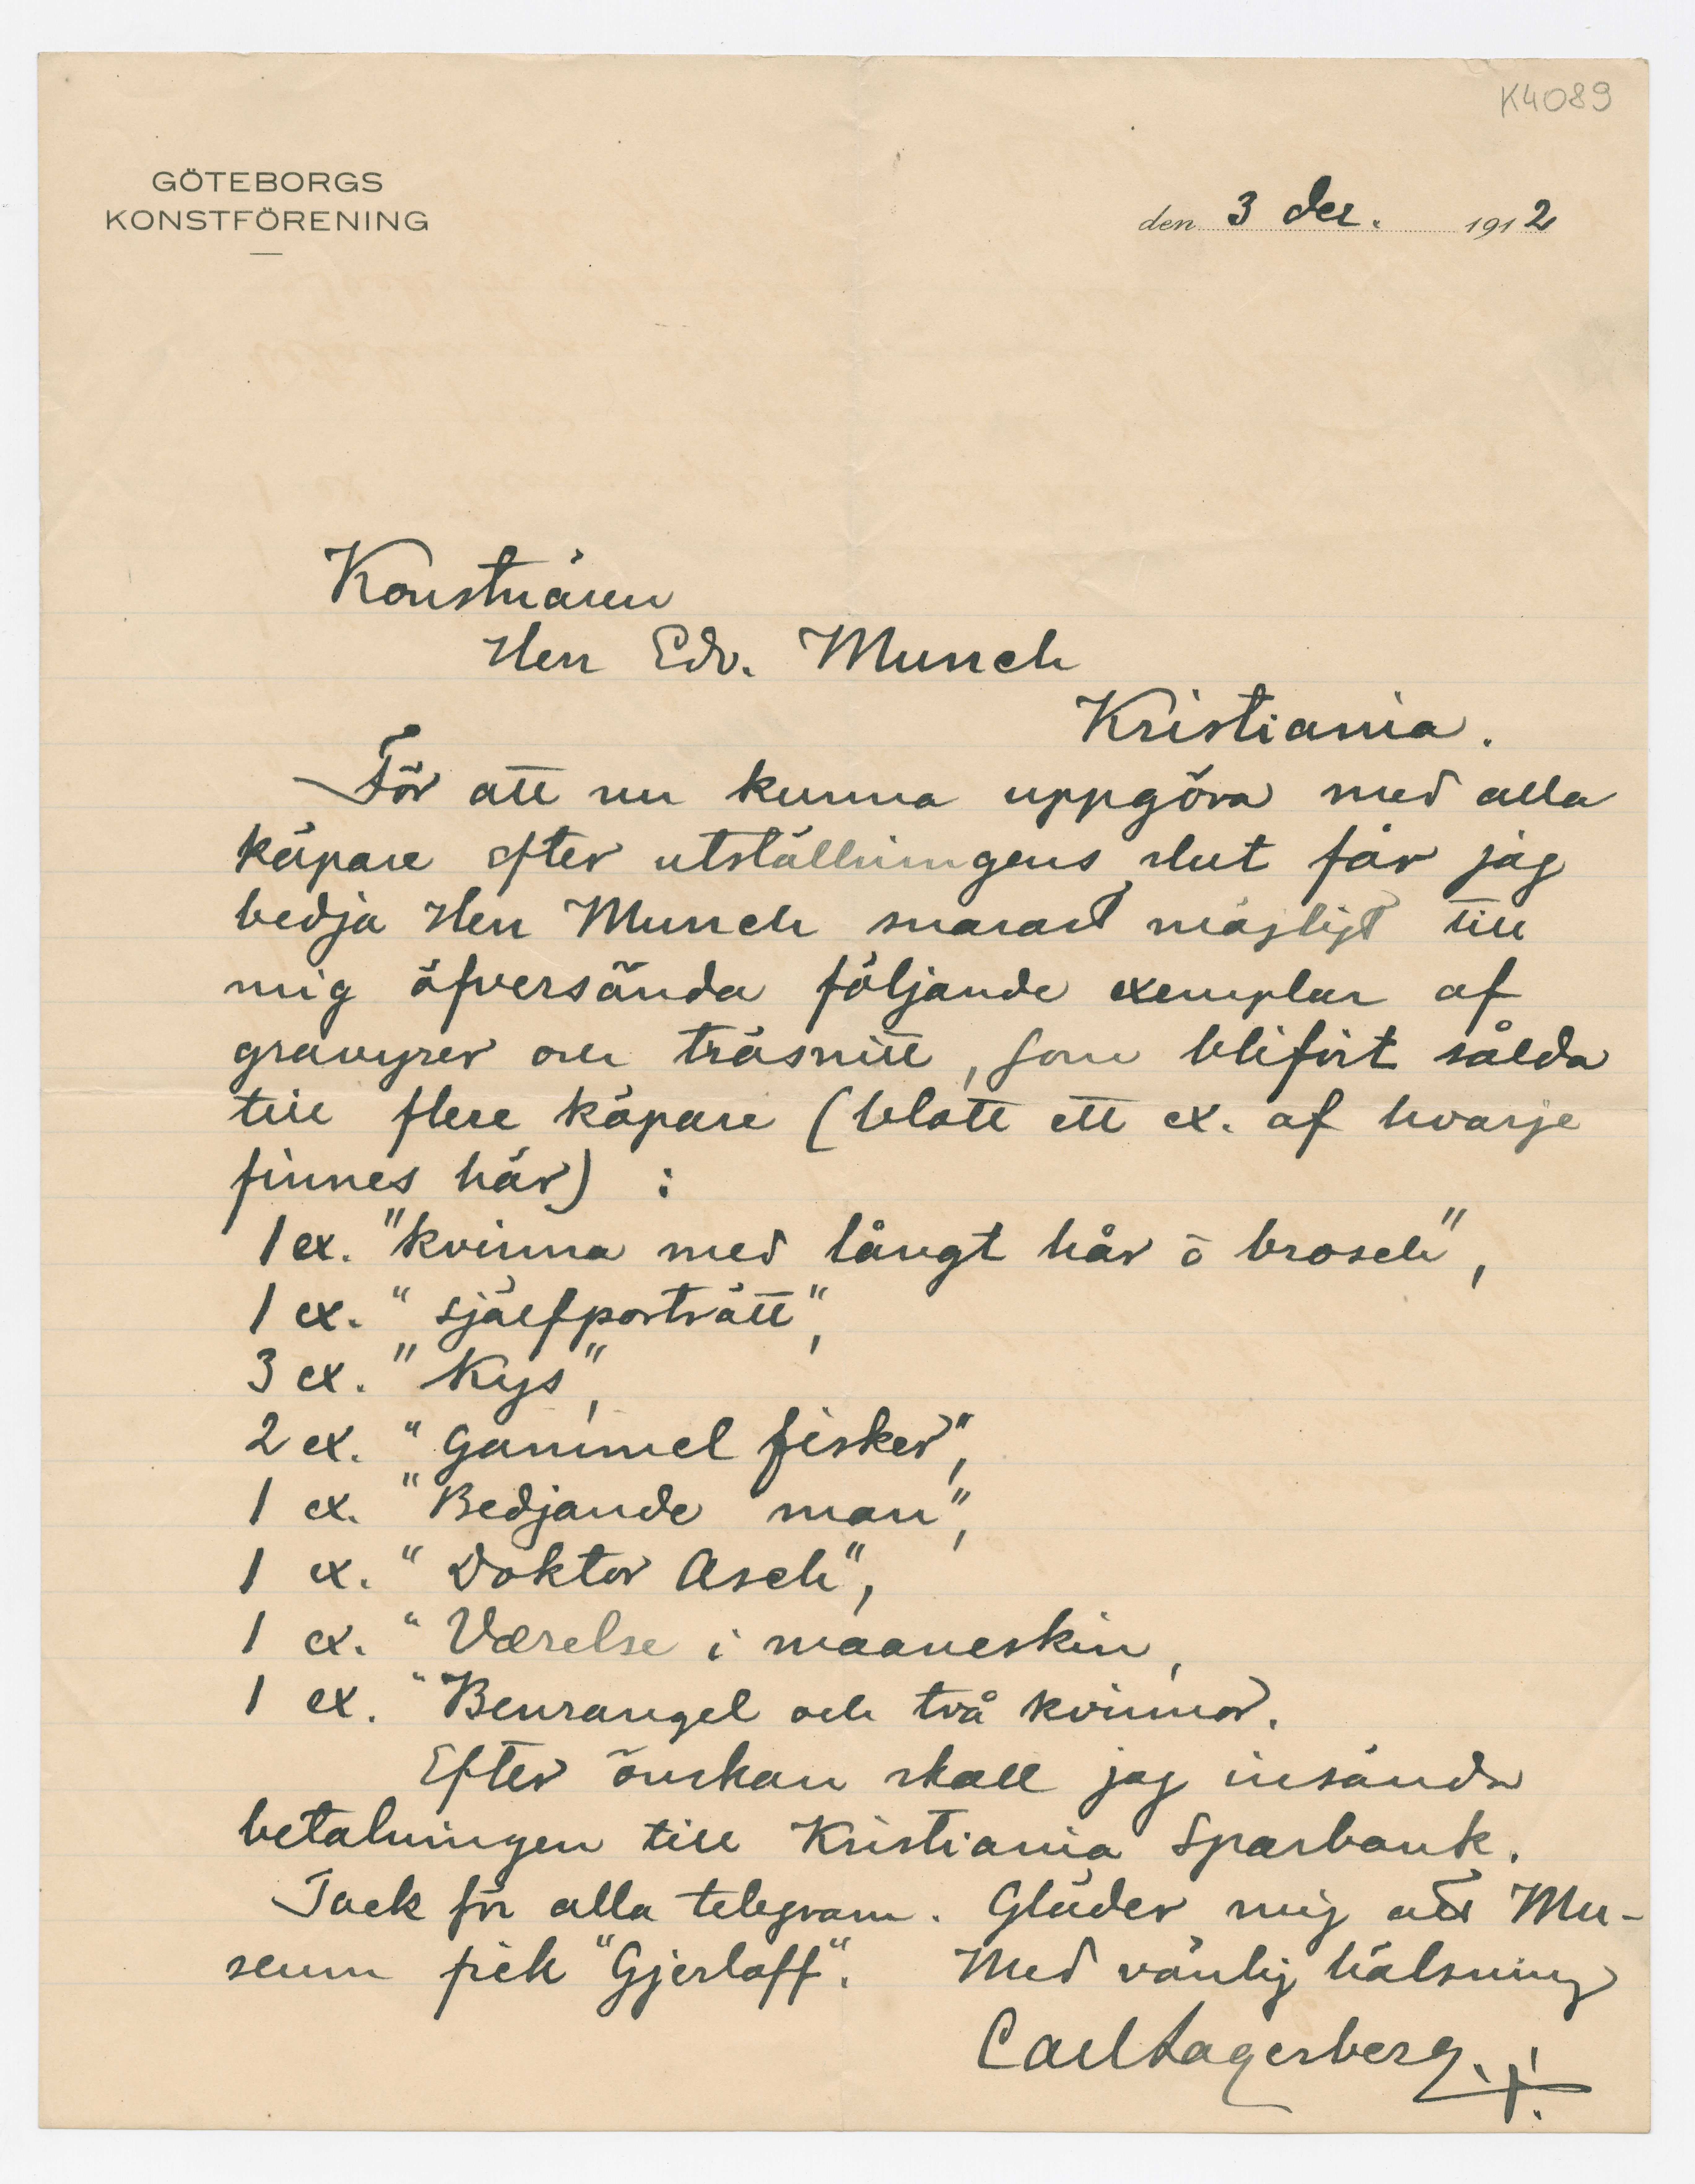 K4089
GÖTEBORGS
KONSTFÖRENING
den 3 dec. 1912
Konstnären
Herr Edv. Munch
Kristiania.
För att nu kunna uppgöra med alla
köpare efter utställningens slut får jag
bedja Herr Munch snarast möjligt till
mig öfversända följande exemplar af
gravyrer och träsnitt, som blifvit sålda
till flere köpare (blott ett ex. af hvarje
finnes här) :
1 ex. "kvinna med långt hår o brosch",
1 ex. "självporträtt",
3 ex. "Kys",
2 ex. "Gammel fisker",
1 ex. "Bedjande man",
1 ex. "Doktor Asch",
1 ex. "Værelse i maaneskin,
1 ex. "Benrangel och två kvinnor.
Efter önskan skall jag insända
betalningen till Kristiania Sparbank.
Tack för alla telegram. Gläder mig att Mu-
seum fick "Gjerlöff". Med vänlig hälsning
Carl Lagerberg.